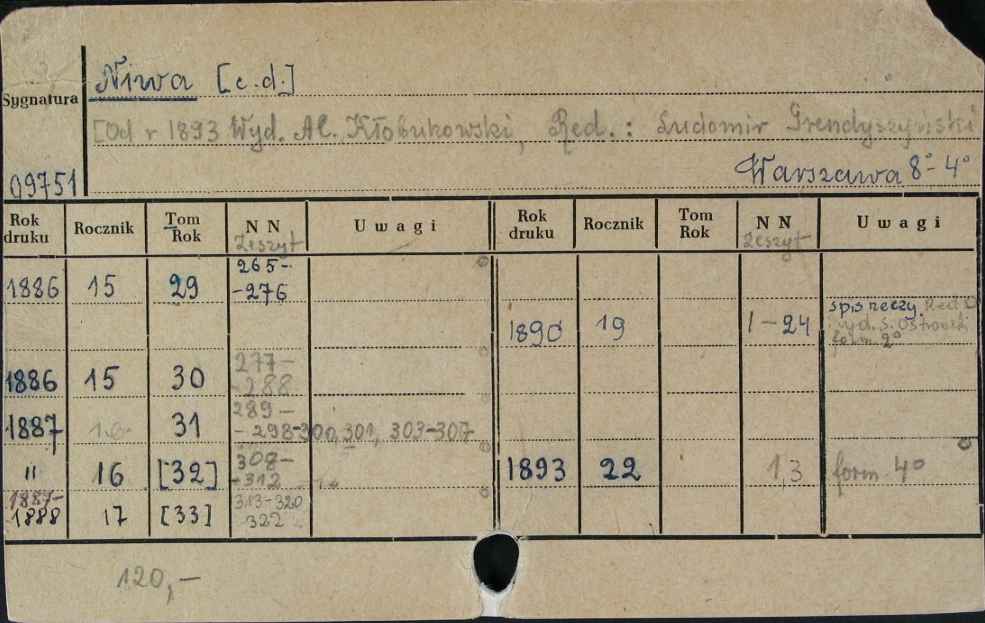 Niwa [c.d.]
Sygnatura
[Od r 1893 Wyd. Al. Kłobukowski, Red. : Ludomir Grendyszyński
09751
Warszawa 8°- 4°
Rok druku Rocznik Tom Rok N N Zeszyt Uwagi Rok druku Rocznik Tom Rok N N Zeszyt Uwagi
1886 15 29 265-
-276
1890 19 1-24 spis rzeczy. Red. i
wyd. S.
form. 2°
1886 15 30 277-
-288
1887 16 31 289-
-298-300, 301, 303-307
" 16 [32] 308-
-312
1893 22 1,3 form. 4°
1887-
1888 17 [33] 313-320
322
120,-